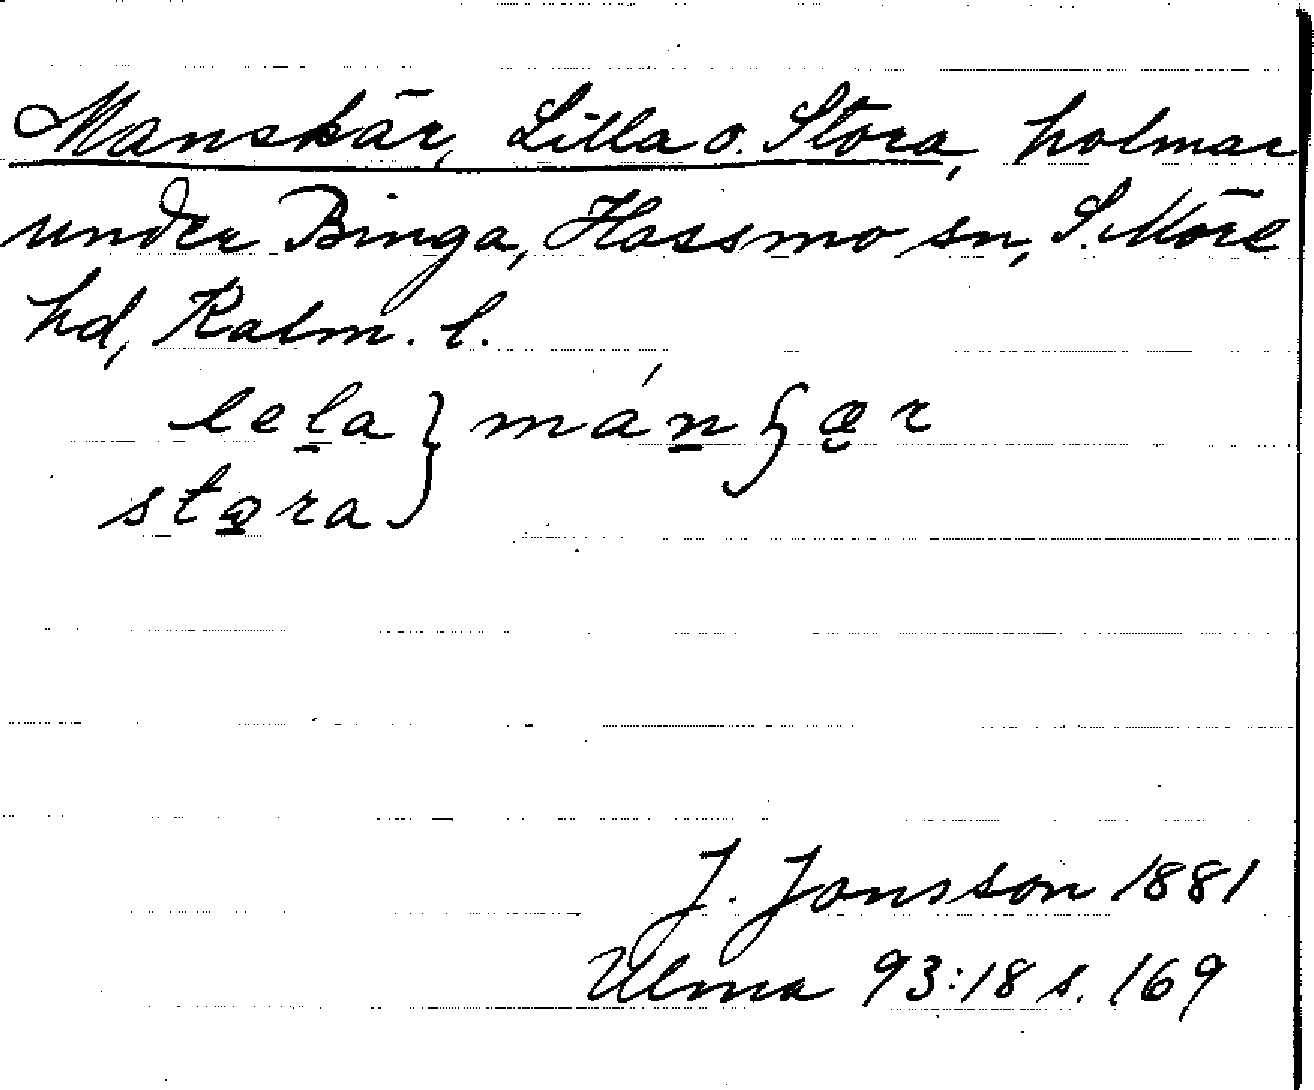 Manskär, Lilla o. Stora, holmar
under Binga, Hossmo sn, S. Möre
hd, Kalm. l.
lela } mánʃær
stora }
J. Jonsson 1881
Ulma 93:18 s. 169